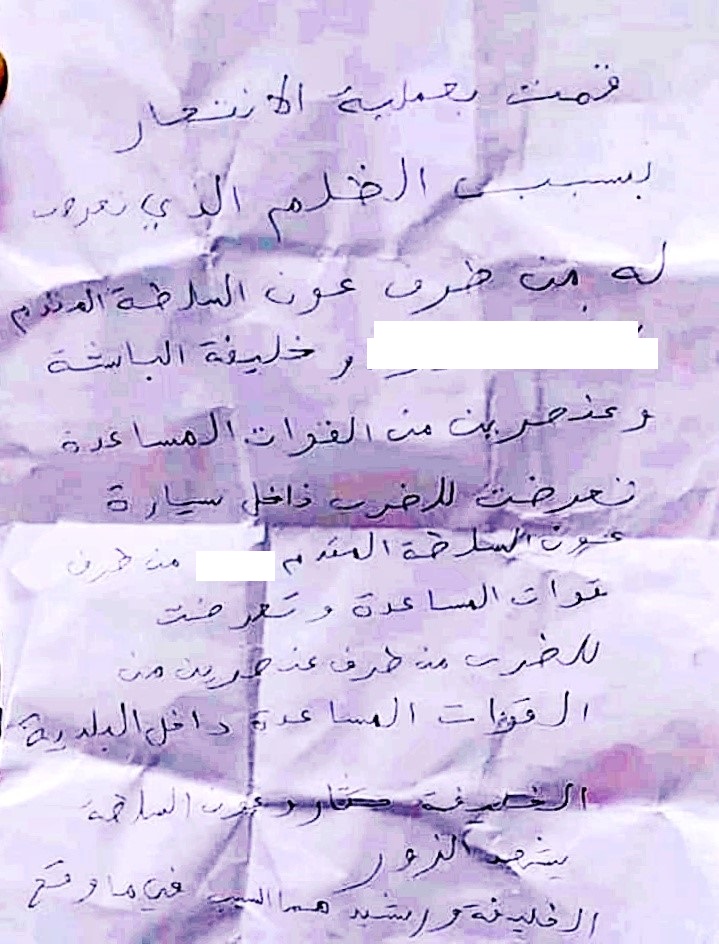 قمت بعملية الانتحار
بسبب الظلم الذي تعرضت
له من طرف عون السلطة المقدم
و خليفة الباشة
وعنصرين من القوات المساعدة
تعرضت للضرب داخل سيارة
عون السلطة المقدم من طرف
قوات المساعدة و تعرضت
للضرب من طرف عنصرين من
القوات المساعدة داخل البلدية
الخليفة وعون السلطة
يشهد الزور
الخليفة و رشيد هما السبب في ما وقع